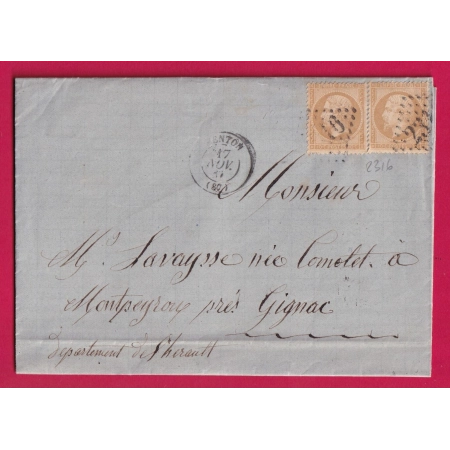 2316
17
NOV.
Monsieur
Mr. Lavaysse née Comolet. à
Montpeyroux près Gignac
Département de l'hérault